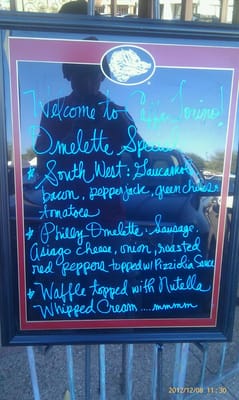 Welcome to Caffe Torino!
Omelette Specials
* South West: Guacamole
bacon, pepperjack, green chiles
tomatoes
* Philly Omelette: Sausage,
asiago cheese, onion, roasted
red peppers topped w/ Pizziolia Sauce
* Waffle topped with Nutella
Whipped Cream ....mmmm
2012/12/08 11:30